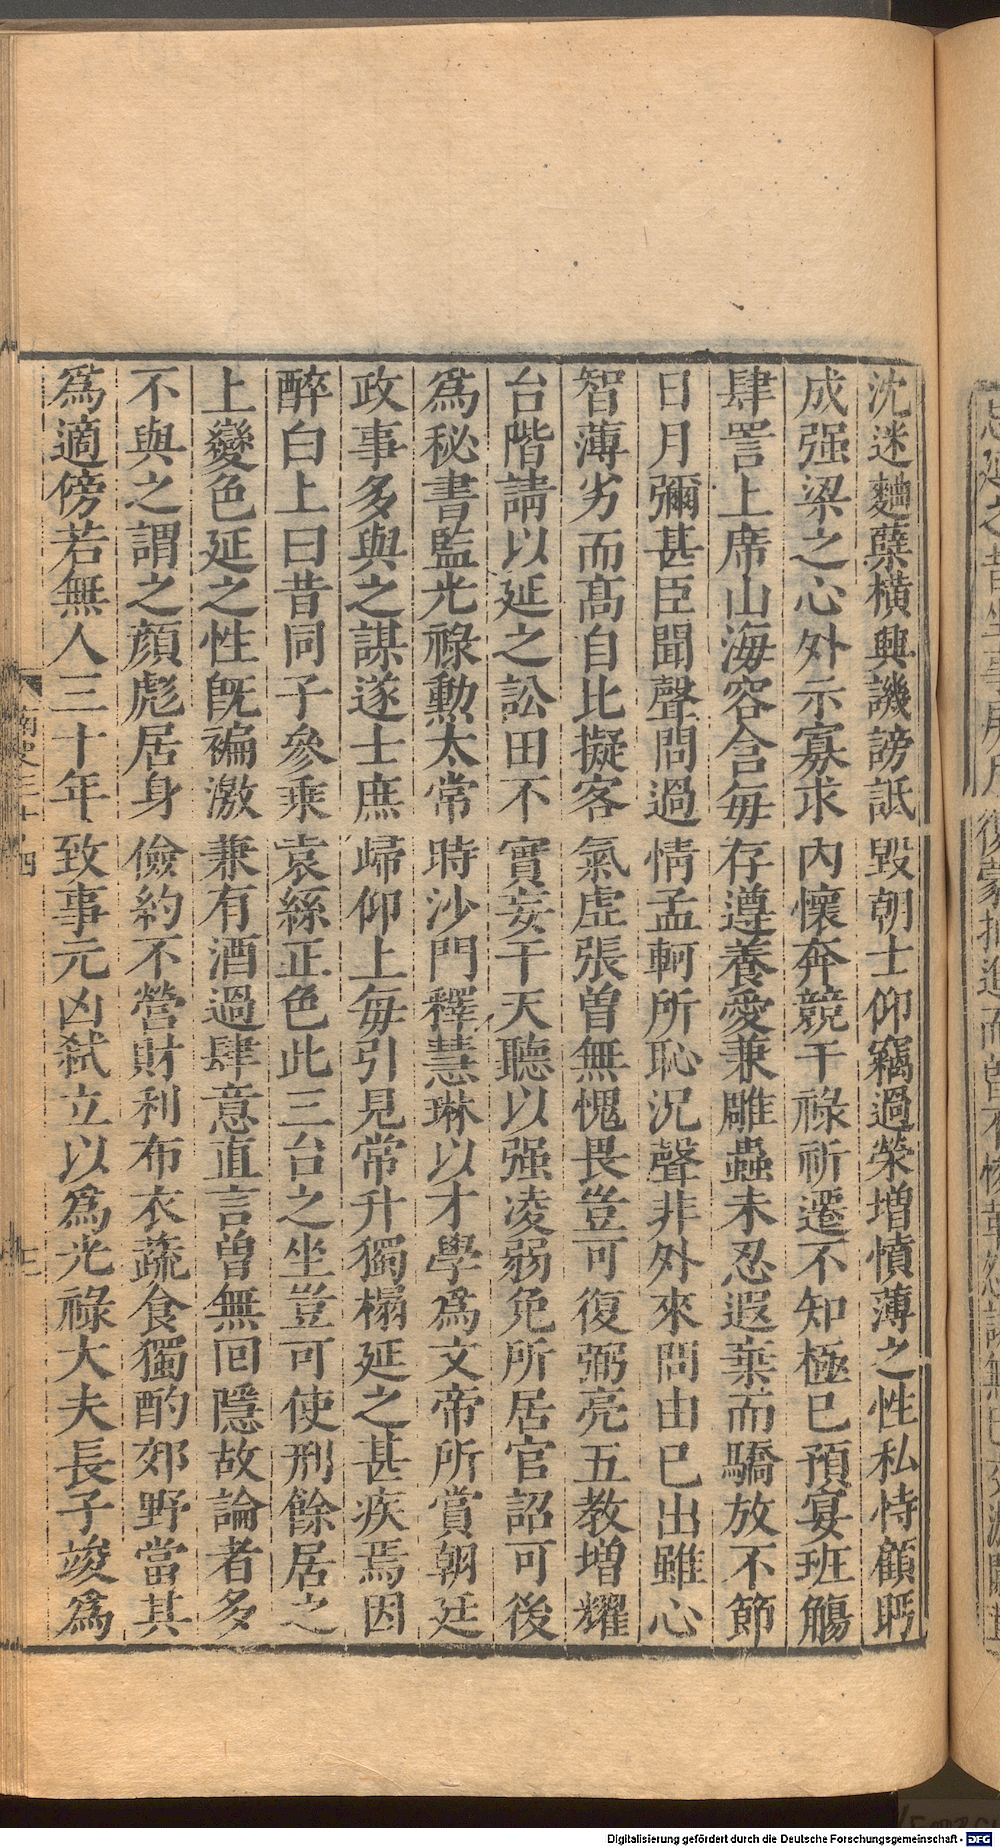 沈迷麯糱橫興譏謗詆毀朝士仰竊過榮增憤薄之性私恃顧眄
成强梁之心外示寡求內懷奔競干祿祈遷不知極已預宴班觴
肆詈上席山海容含每存遵養愛兼雕蟲未忍遐棄而驕放不節
日月彌甚臣聞聲問過情孟軻所恥況聲非外來問由已出雖心
智薄劣而髙自比擬客氣虛張曾無愧畏豈可復弼亮五教増耀
台階請以延之訟田不實妄干天聽以强凌弱免所居官詔可後
爲秘書監光祿勳太常時沙門釋慧琳以才學爲文帝所賞朝廷
政事多與之謀遂士庶歸仰上每引見常升獨榻延之甚疾焉因
醉白上曰昔同子參乘袁絲正色此三台之坐豈可使刑餘居之
上變色延之性旣褊激兼有酒過肆意直言曾無回隱故論者多
不與之謂之顔彪居身儉約不營財利布衣蔬食獨酌郊野當其
爲適傍若無人三十年致事元凶弑立以爲光祿大夫長子竣爲
南史三十四
Digitalisierung gefördert durch die Deutsche Forschungsgemeinschaft - DFG